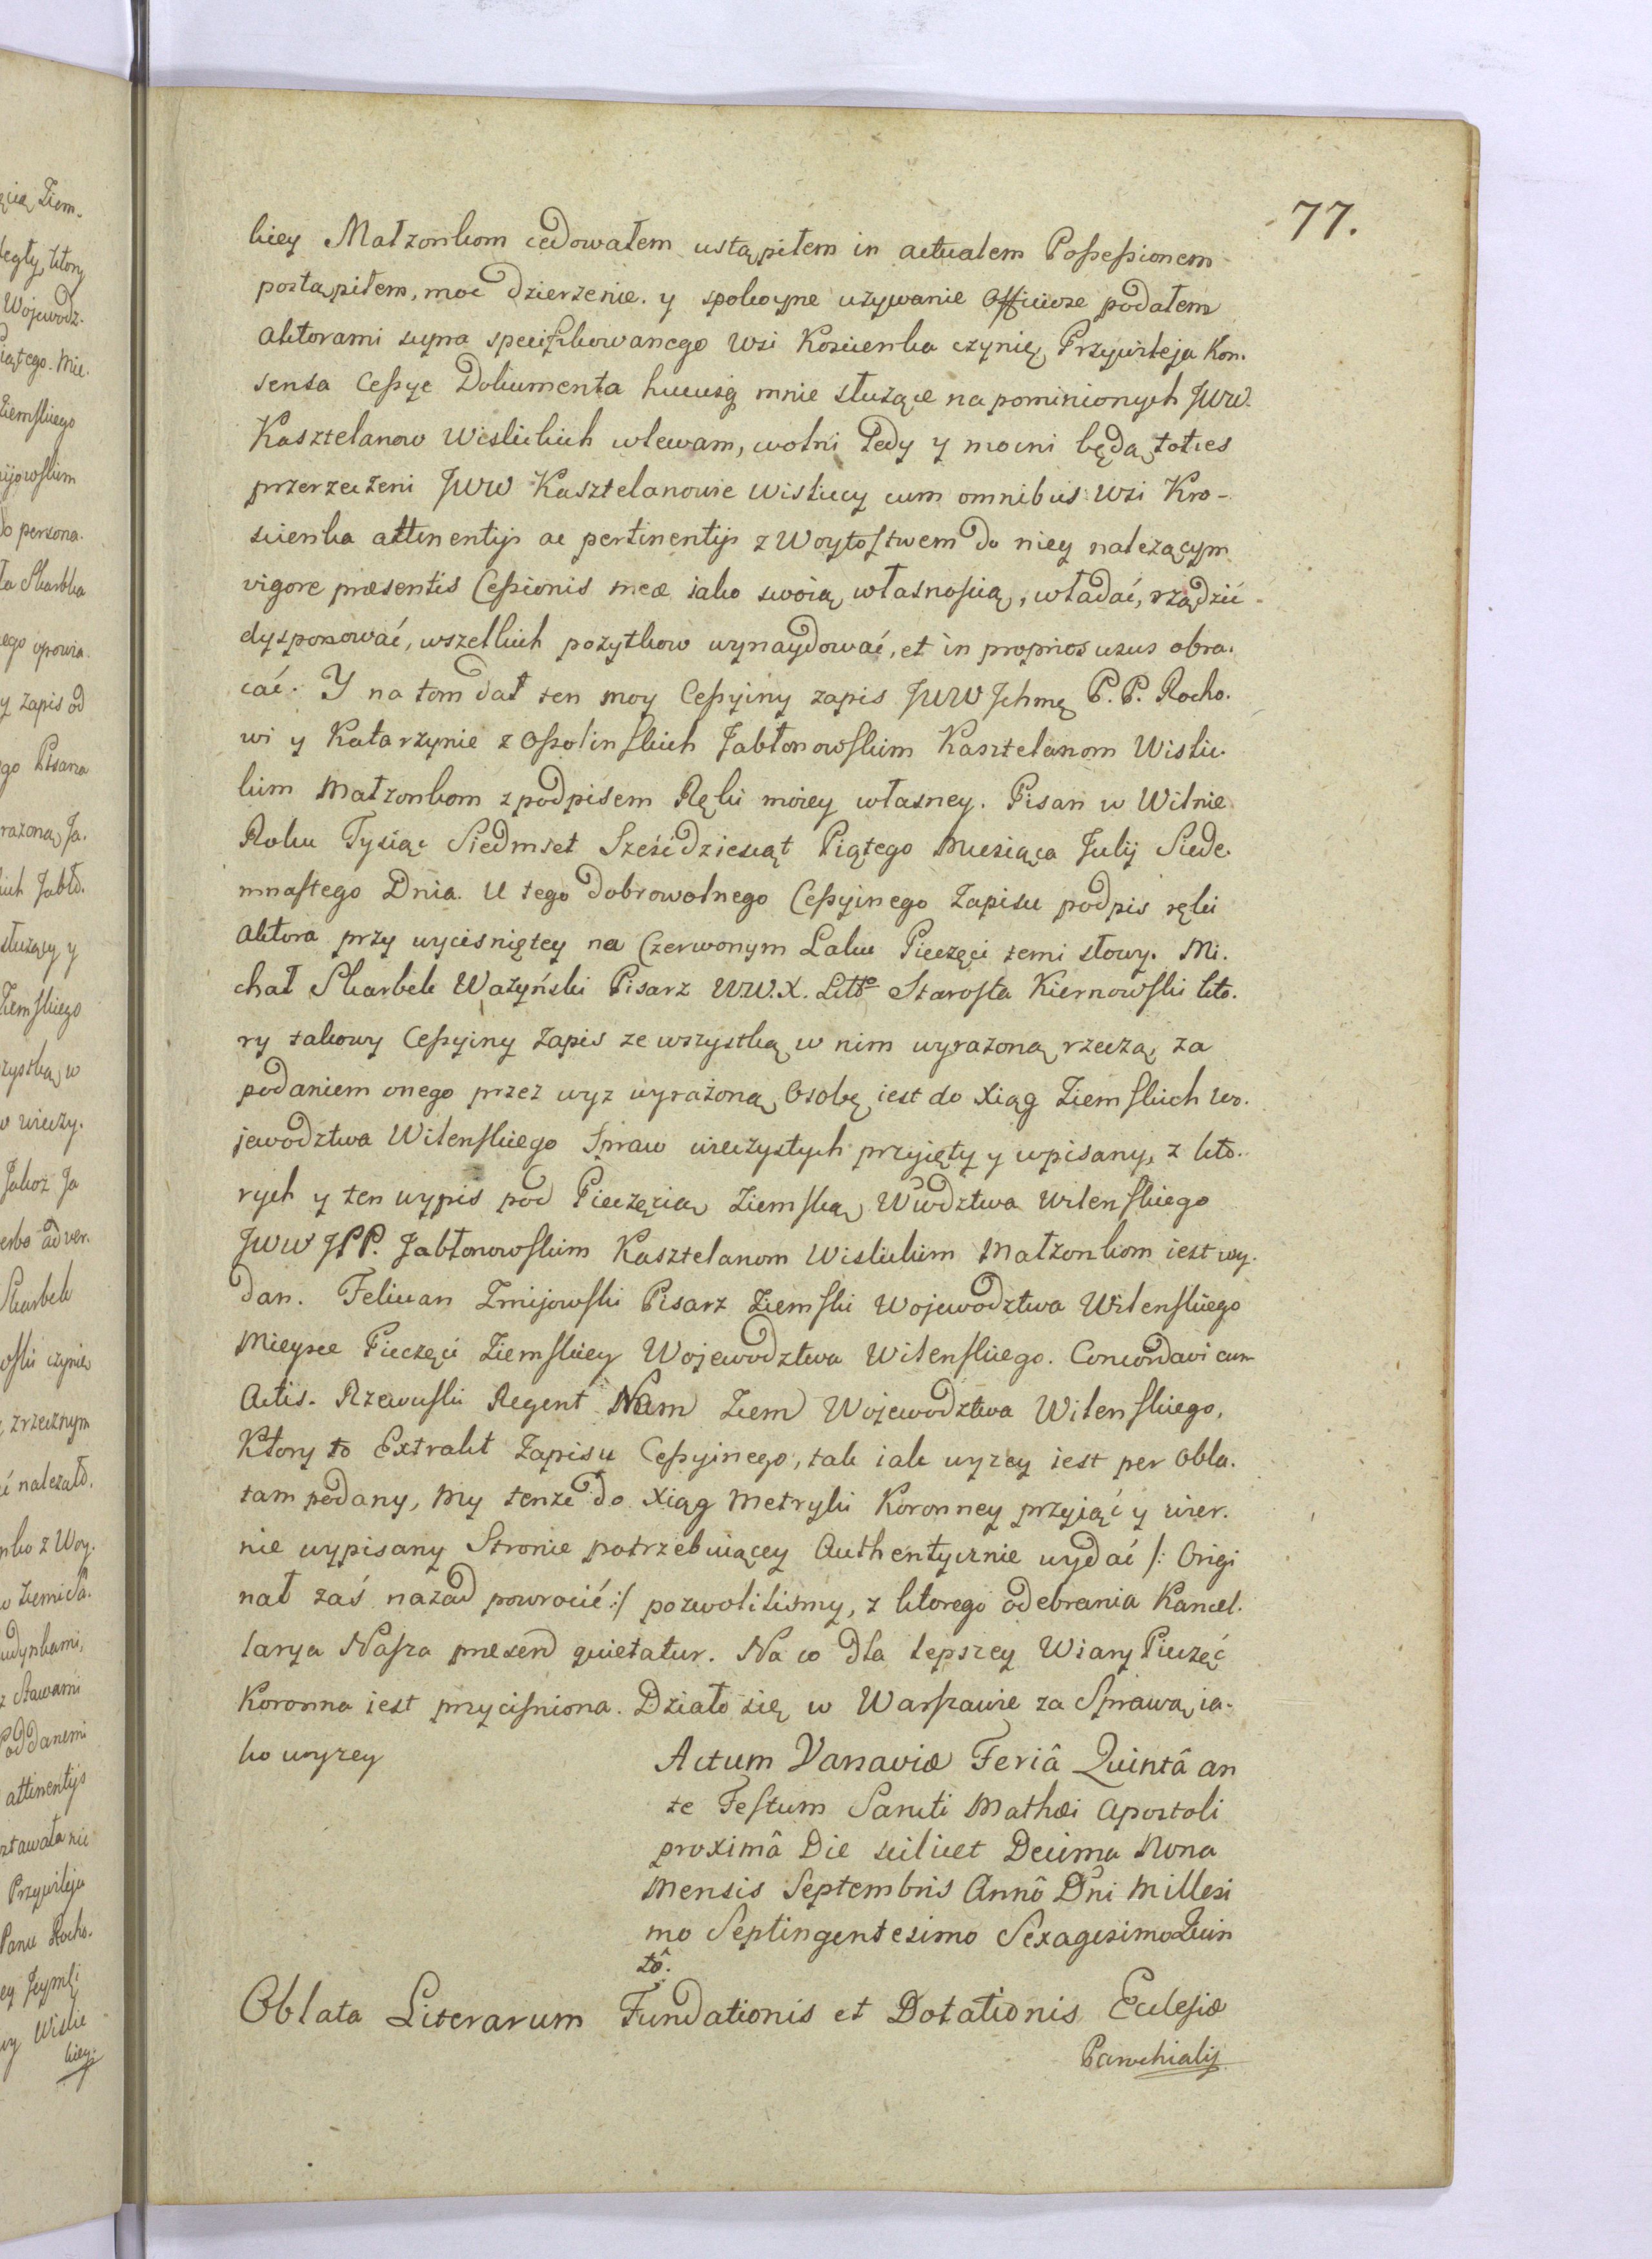 77.
kiey Małzonkom cedowałem ustąpiłem in actualem Poßeßionem
postąpiłem, moc dzierzenie. y spokoyne używanie Officiose podałem
Aktorami supra specifikowanego Wsi Kościenka czynię, Przywileja Kon-
sensa Ceßye Dokumenta hucusq mnie służące na pominionych JWW.
Kasztelanow Wislickich wlewam, wolni tedy y mocni będą toties
przerzeczeni JWW Kasztelanowie Wisliccy cum omnibus Wsi Kro-
scienka attinentijs ac pertinentijs z Woytostwem do niey należącym
vigore præsentis Ceßionis meæ iako swoią własnoscią, władać, rządzić
dysponować, wszelkich pożytkow wynaydować, et in proprios usus obra-
cać. Y na tom dał ten moy Ceßyiny zapis JWW Jchmę P. P. Rocho-
wi y Katarzynie z Oßolinskich Jabłonowskim Kasztelanom Wislic-
kim Małzonkom z podpisem Ręki moiey własney. Pisan w Wilnie
Roku Tysiąc Siedmset Sześćdziesiąt Piątego Miesiąca Julij Siede-
mnastego Dnia. U tego dobrowolnego Ceßyinego Zapisu podpis ręki
Aktora przy wycisniętey na Czerwonym Laku Pieczęci temi słowy. Mi-
chał Skarbek Ważyński Pisarz W.W.X. Litto Starosta Kiernowski kto-
ry takowy Ceßyiny Zapis ze wszystką w nim wyrażoną rzeczą, za
podaniem onego przez wyz wyrażoną Osobę iest do Xiąg Ziemskich Wo-
jewodztwa Wilenskiego Spraw wieczystych przyięty y wpisany, z kto-
rych y ten wypis pod Pieczęcią Ziemską Wwdztwa Wilenskiego
JWW JPP. Jabłonowskim Kasztelanom Wislickim Małzonkom iest wy-
dan. Felician Zmijowski Pisarz Ziemski Wojewodztwa Wilenskiego
Mieysce Pieczęci Ziemskiey Wojewodztwa Wilenskiego. Concordavi cum
Actis. Rzewuski Regent Nam Ziem Wojewodztwa Wilenskiego,
Ktory to Extrakt Zapisu Ceßyinego, tak iak wyzey iest per Obla-
tam podany, My tenże do Xiąg Metryki Koronney przyiąć y wier-
nie wypisany Stronie potrzebuiącey Authentycznie wydać /: Origi
nał zaś nazad powrocić :/ pozwoliliśmy, z ktorego odebrania Kancel-
larya Nasza præsend quietatur. Na co dla lepszey Wiary Pieczęć
Koronna iest przyciśniona. Działo się w Warszawie za Sprawą ia-
ko wyzey
Actum Varsaviæ Feriâ Quintâ an
te Festum Sancti Mathæi Apostoli
proximâ Die scilicet Decima Nona
Mensis Septembris Annô Dni Millesi
mo Septingentesimo Sexagesimo Quin
tô.
Oblata Literarum Fundationis et Dotationis Ecclesiæ
Parochialis